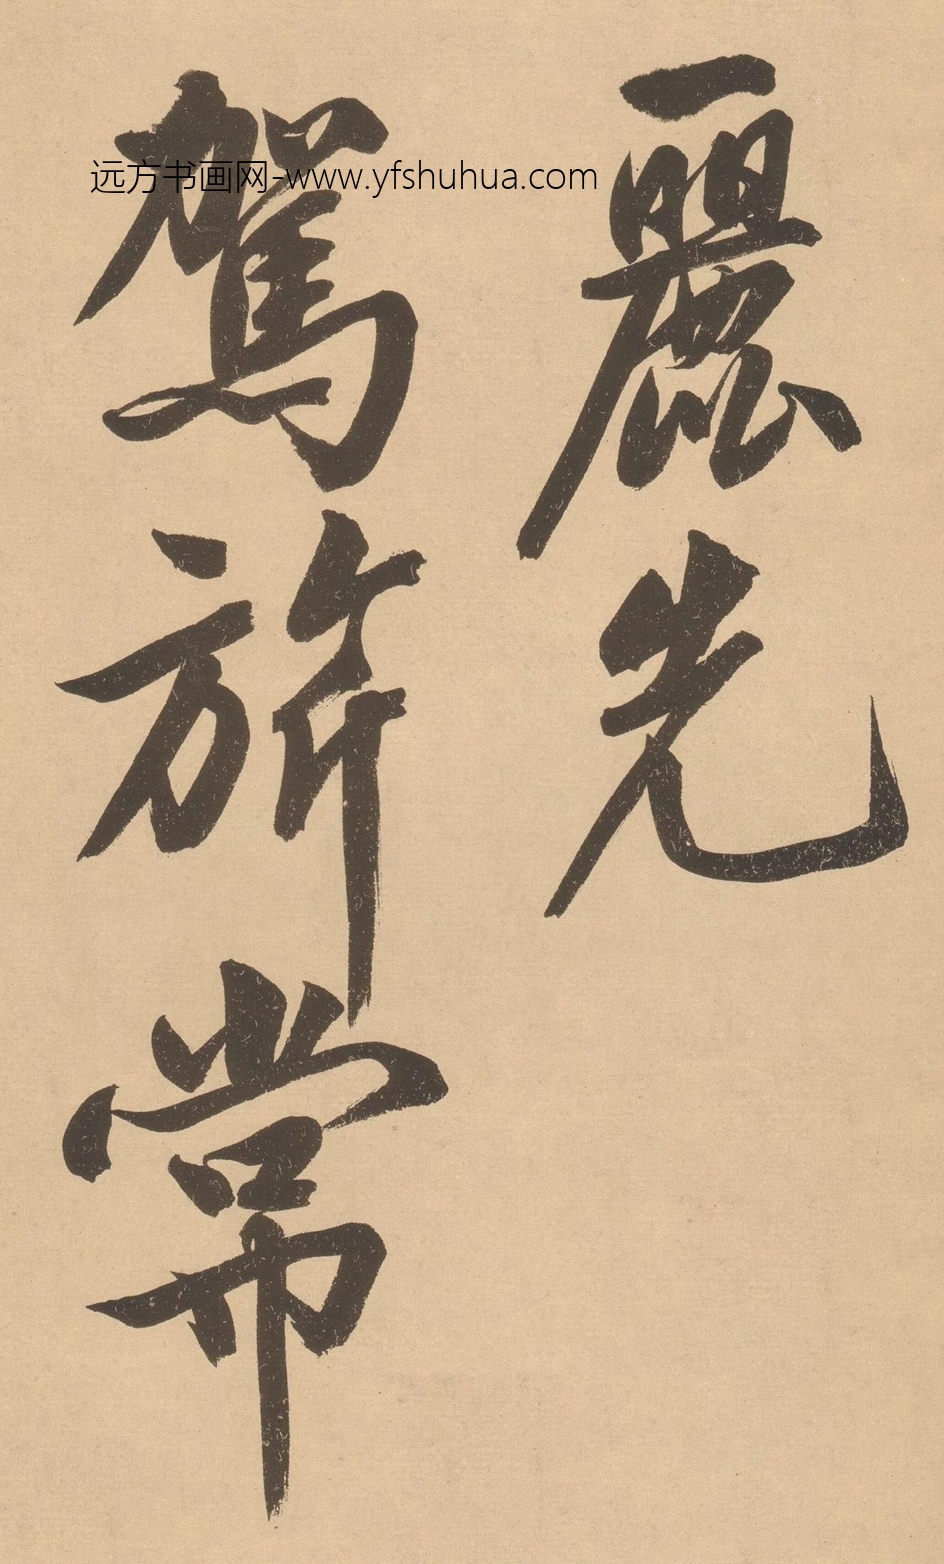 麗先
駕旂常
远方书画网-www.yfshuhua.com